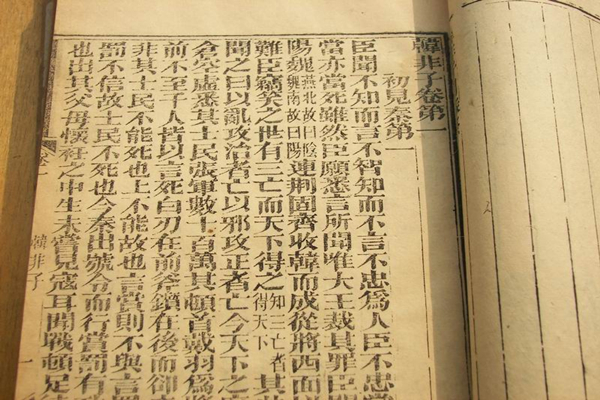 韓非子卷第一
初見秦第
臣聞不知而言不智知而不言不忠爲人臣不忠當
當亦當死雖然臣願悉言所聞唯大王裁其罪臣聞
陽魏燕北故曰陰魏南故曰陽連荆固齊收韓而成從將西面
難臣竊笑之世有三亡而天下得之知三亡者得天下其
聞之曰以亂攻治者亡以邪攻正者亡今天下之
倉空虛悉其士民張軍數十百萬其頓首戴羽爲
前不至千人皆以言死白刃在前斧鑕在後而卻
非其士民不能死也上不能故也言賞則不與言
罰不信故士民不死也今秦出號令而行賞罰有
也出其父母懷衽之中生未嘗見寇耳聞戰頓足
韓非子